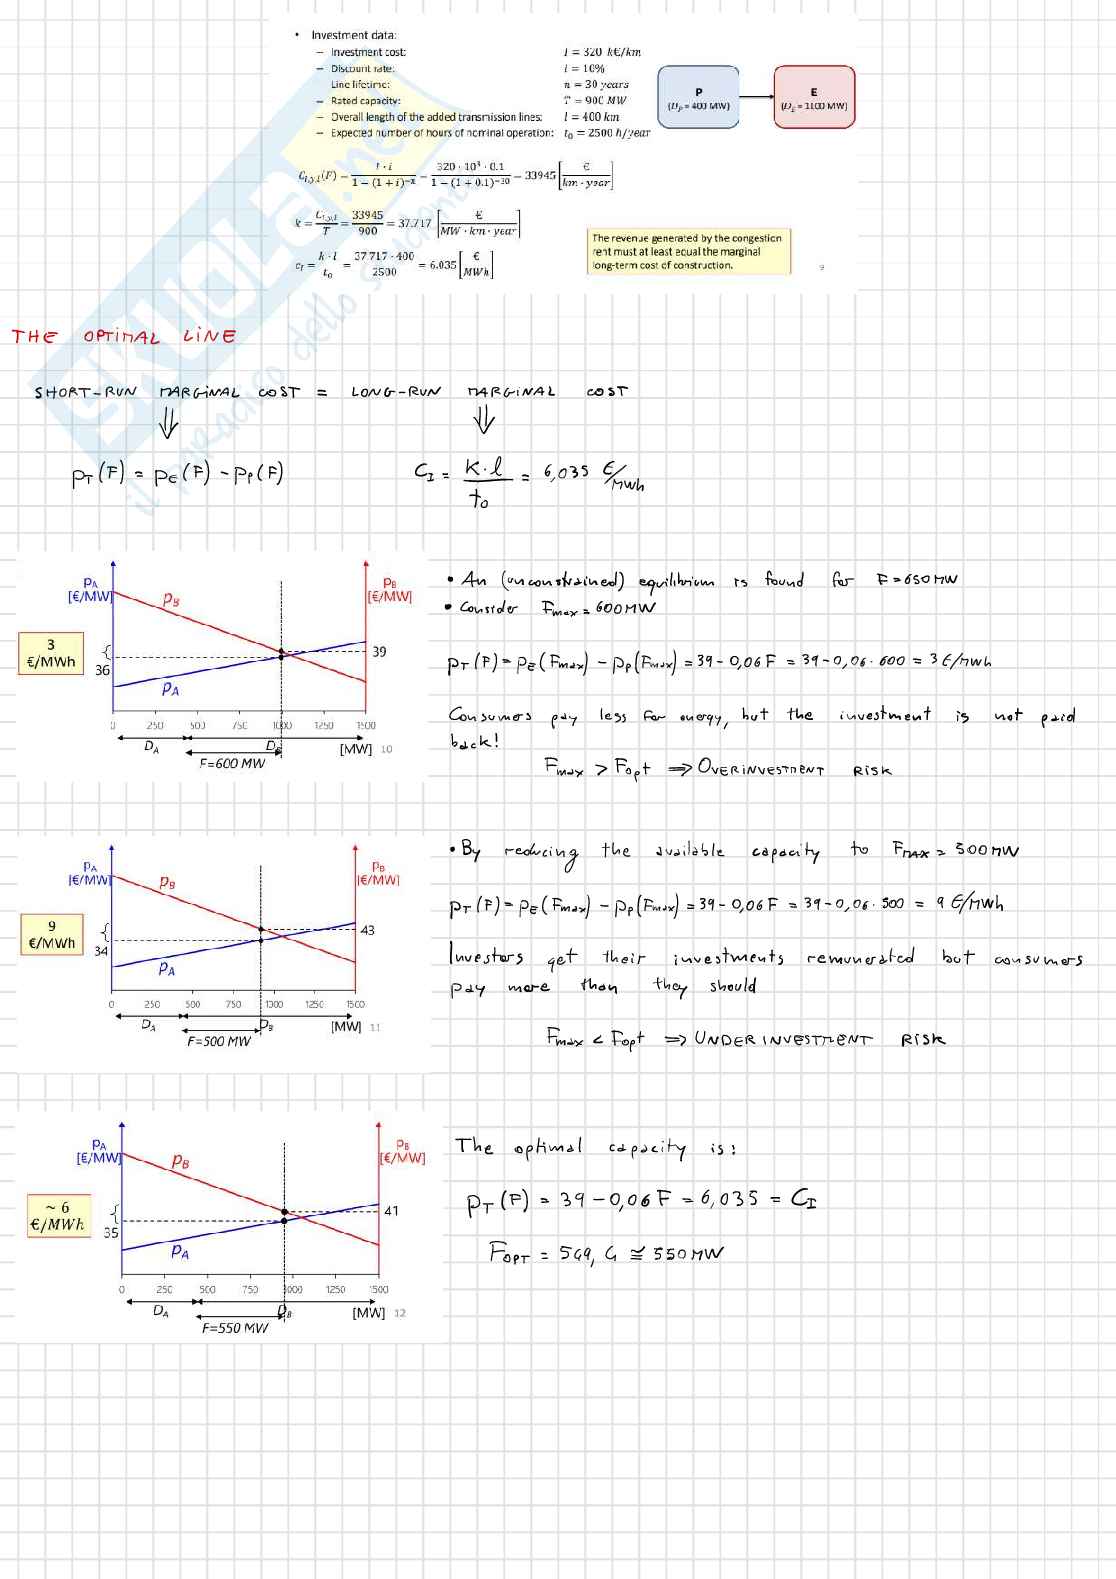 • Investment data:
– Investment cost: I = 320 k€/km
– Discount rate: i = 10%
Line lifetime: n = 30 years
– Rated capacity: T = 900 MW
– Overall length of the added transmission lines: l = 400 km
– Expected number of hours of nominal operation: t₀ = 2500 h/year
P
(D_P = 400 MW)
E
(D_E = 1100 MW)
C_{I,y,l}(F) = (I · i)/(1 − (1 + i)^{−n}) = (320 · 10³ · 0.1)/(1 − (1 + 0.1)^{−30}) = 33945 [€/(km · year)]
k = C_{I,y,l}/T = 33945/900 = 37.717 [€/(MW · km · year)]
c_I = (k · l)/t₀ = (37 717 · 400)/2500 = 6.035 [€/MWh]
The revenue generated by the congestion
rent must at least equal the marginal
long-term cost of construction.
9
THE OPTIMAL LINE
SHORT-RUN MARGINAL COST = LONG-RUN MARGINAL COST
⇓ ⇓
p_T(F) = p_E(F) - p_P(F)
C_I = K·l/t₀ = 6,035 €/MWh
p_A
[€/MW]
p_B
p_B
[€/MW]
3
€/MWh
36
39
p_A
0 250 500 750 1000 1250 1500
D_A D_B [MW] 10
F=600 MW
• An (unconstrained) equilibrium is found for F=650MW
• Consider Fmax=600MW
p_T(F)=p_E(Fmax) - p_P(Fmax) = 39-0,06F = 39-0,06·600 = 3 €/MWh
Consumers pay less for energy, but the investment is not paid
back!
Fmax > Fopt ⇒ OVERINVESTMENT RISK
p_A
[€/MW]
p_B
p_B
[€/MW]
9
€/MWh
34
43
p_A
0 250 500 750 1000 1250 1500
D_A D_B [MW] 11
F=500 MW
• By reducing the available capacity to FMAX = 500MW
p_T(F)=p_E(Fmax) - p_P(Fmax) = 39-0,06F = 39-0,06·500 = 9 €/MWh
Investors get their investments remunerated but consumers
pay more than they should
Fmax < Fopt ⇒ UNDERINVESTMENT RISK
p_A
[€/MW]
p_B
p_B
[€/MW]
~ 6
€/MWh
35
41
p_A
0 250 500 750 1000 1250 1500
D_A D_B [MW] 12
F=550 MW
The optimal capacity is:
p_T(F) = 39-0,06F = 6,035 = C_I
F_OPT = 549,4 ≅ 550MW
SKUOLA.net
il paradiso dello studente